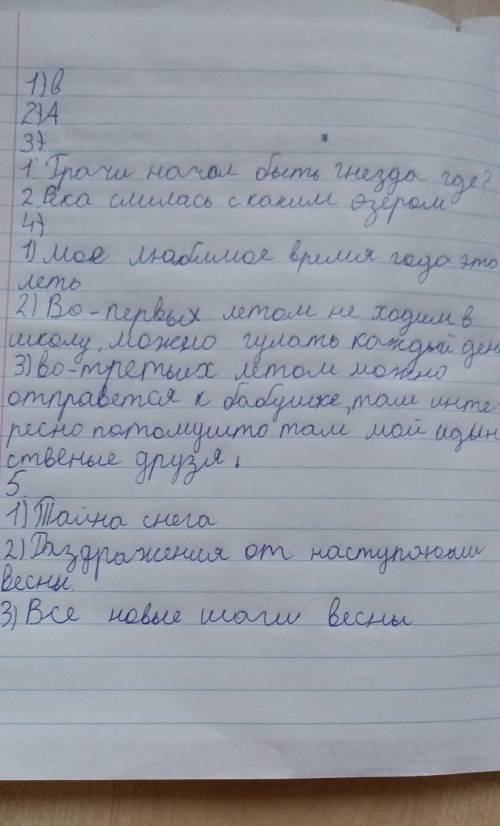 1) в
2) А
3)
1. Грачи начал быть гнезда где?
2. Река слилась с каким озером
4)
1) Мое любимое время года это
леть
2) Во-первых летом не ходим в
школу, можно гулать каждый ден
3) во-третьих летом можно
отправется к бабушке, там инте
ресно потомушто там мой идын
ственые друзя.
5.
1) Тайна снега
2) Раздражения от наступоюши
весны.
3) Все новые шаги весны